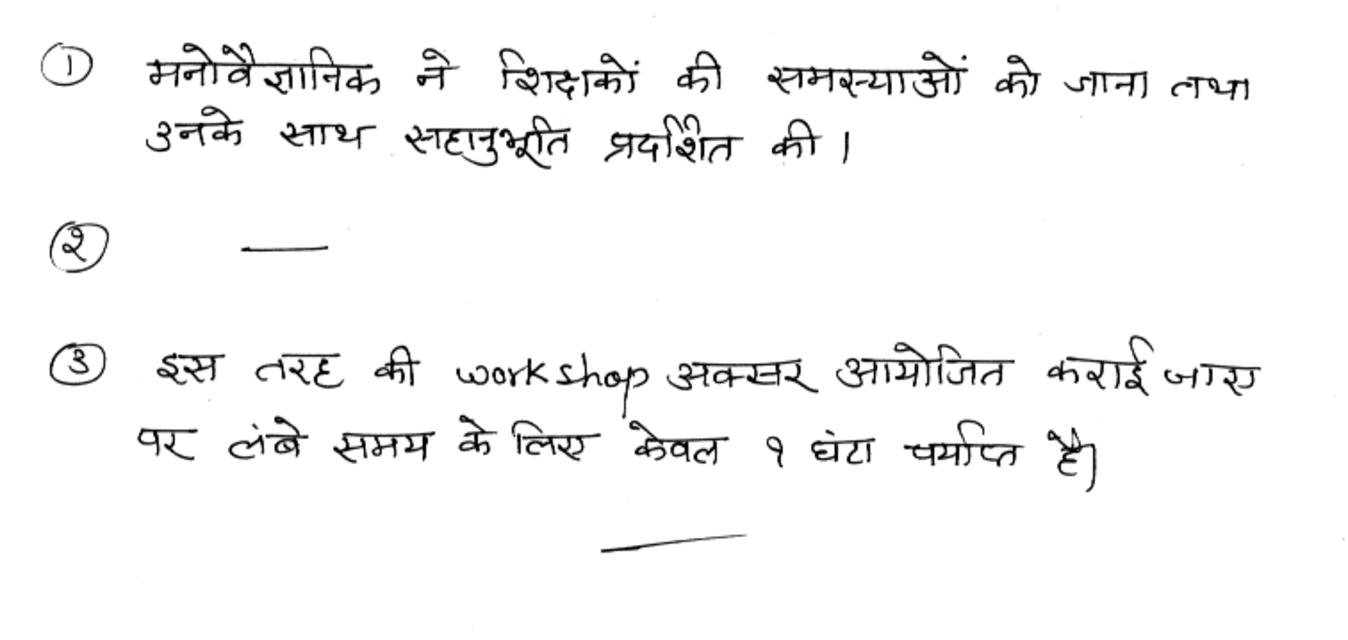 ① मनोवैज्ञानिक ने शिक्षकों की समस्याओं को जाना तथा
उनके साथ सहानुभूति प्रदर्शित की ।
② —
③ इस तरह की workshop अक्सर आयोजित कराई जाए
पर लंबे समय के लिए केवल १ घंटा पर्याप्त है।